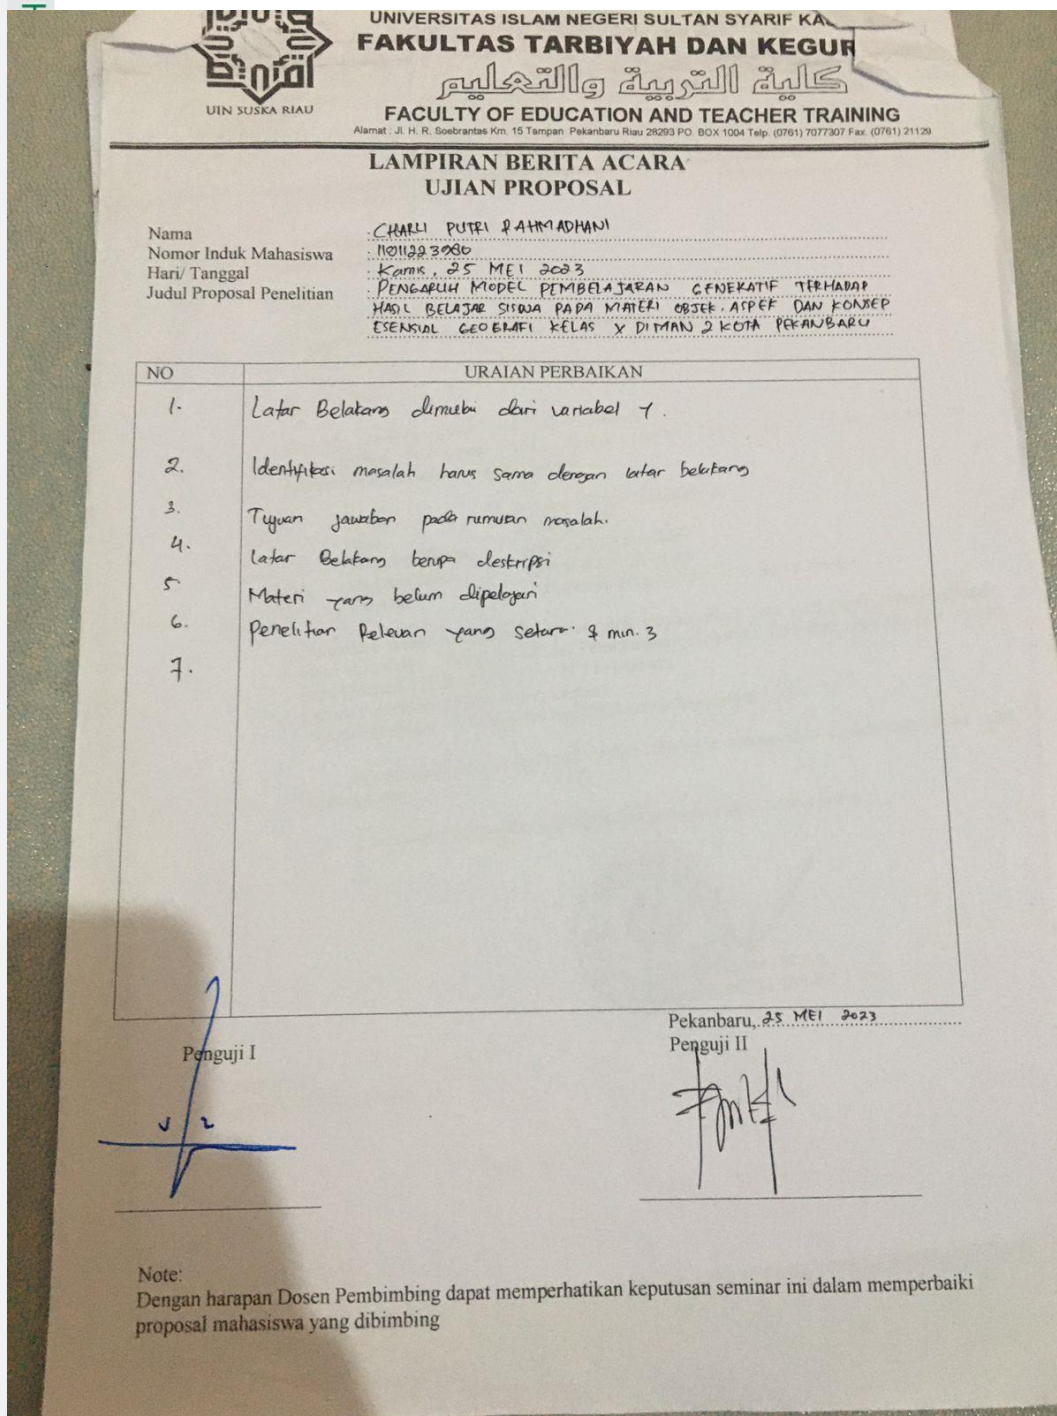 UIN SUSKA RIAU
UNIVERSITAS ISLAM NEGERI SULTAN SYARIF KA
FAKULTAS TARBIYAH DAN KEGUR
كلية التربية والتعليم
FACULTY OF EDUCATION AND TEACHER TRAINING
Alamat : Jl. H. R. Soebrantas Km. 15 Tampan Pekanbaru Riau 28293 PO. BOX 1004 Telp. (0761) 7077307 Fax. (0761) 21129
LAMPIRAN BERITA ACARA
UJIAN PROPOSAL
Nama : CHARLI PUTRI RAHMADHANI
Nomor Induk Mahasiswa :
Hari/ Tanggal : Kamis, 25 MEI 2023
Judul Proposal Penelitian : PENGARUH MODEL PEMBELAJARAN GENERATIF TERHADAP
HASIL BELAJAR SISWA PADA MATERI OBJEK, ASPEK DAN KONSEP
ESENSIAL GEOGRAFI KELAS X DI MAN 2 KOTA PEKANBARU
NO URAIAN PERBAIKAN
1. Latar Belakang dimulai dari variabel Y.
2. Identifikasi masalah harus sama dengan latar belakang
3. Tujuan jawaban pada rumusan masalah.
4. Latar Belakang berupa deskripsi
5 Materi yang belum dipelajari
6. Penelitian Relevan yang setara min. 3
7.
Pekanbaru, 25 MEI 2023
Penguji I Penguji II
Note:
Dengan harapan Dosen Pembimbing dapat memperhatikan keputusan seminar ini dalam memperbaiki
proposal mahasiswa yang dibimbing